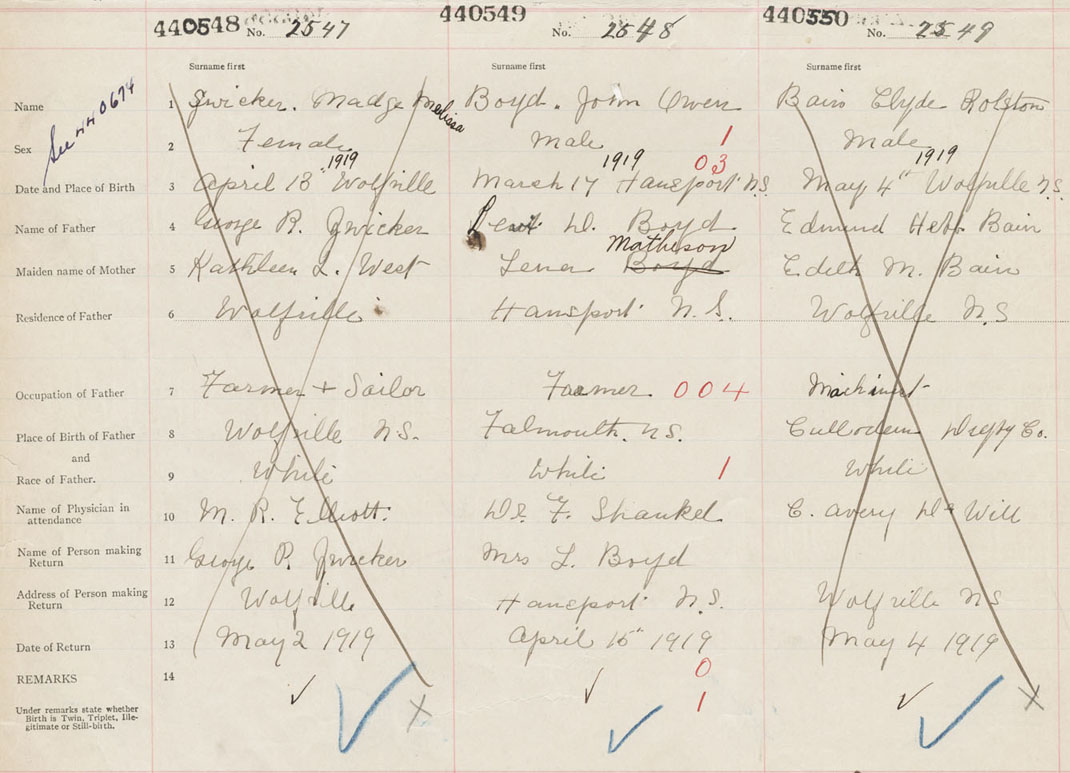 440548 No. 2547 440549 No. 2548 440550 No. 2549
Surname first Surname first Surname first
See 440674
Name 1 Zwicker. Madge Melissa Boyd. John Owen Bain Clyde Rolston
Sex 2 Female Male 1 Male
1919 1919 03 1919
Date and Place of Birth 3 April 13" Wolfville March 17 Hansport N.S. May 4th Wolfville N.S.
Name of Father 4 George R. Zwicker D. Boyd Edmund Hebb Bain
Matheson
Maiden name of Mother 5 Kathleen L. West Lena Boyd Edith M. Bain
Residence of Father 6 Wolfville Hansport N.S. Wolfville N.S
Occupation of Father 7 Farmer + Sailor Farmer 004 Machinist
Place of Birth of Father 8 Wolfville N.S. Falmouth. N.S. Digby Co.
and
Race of Father. 9 White White 1 White
Name of Physician in attendance 10 M. R. Elliott. Dr. F. Shankel C. Avery De Witt
Name of Person making Return 11 George R. Zwicker Mrs L. Boyd
Address of Person making Return 12 Wolfville Hansport N.S. Wolfville NS
Date of Return 13 May 2 1919 April 15" 1919 May 4 1919
REMARKS 14 0
Under remarks state whether Birth is Twin, Triplet, Ille-
gitimate or Still-birth. 1